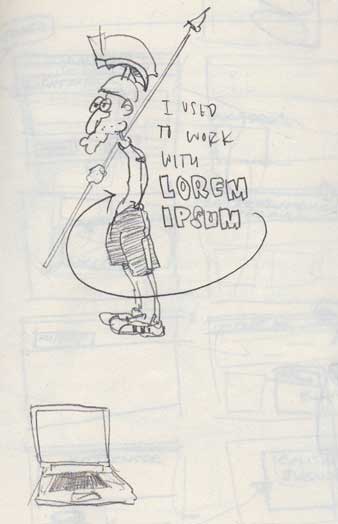 I USED
TO WORK
WITH
LOREM
IPSUM